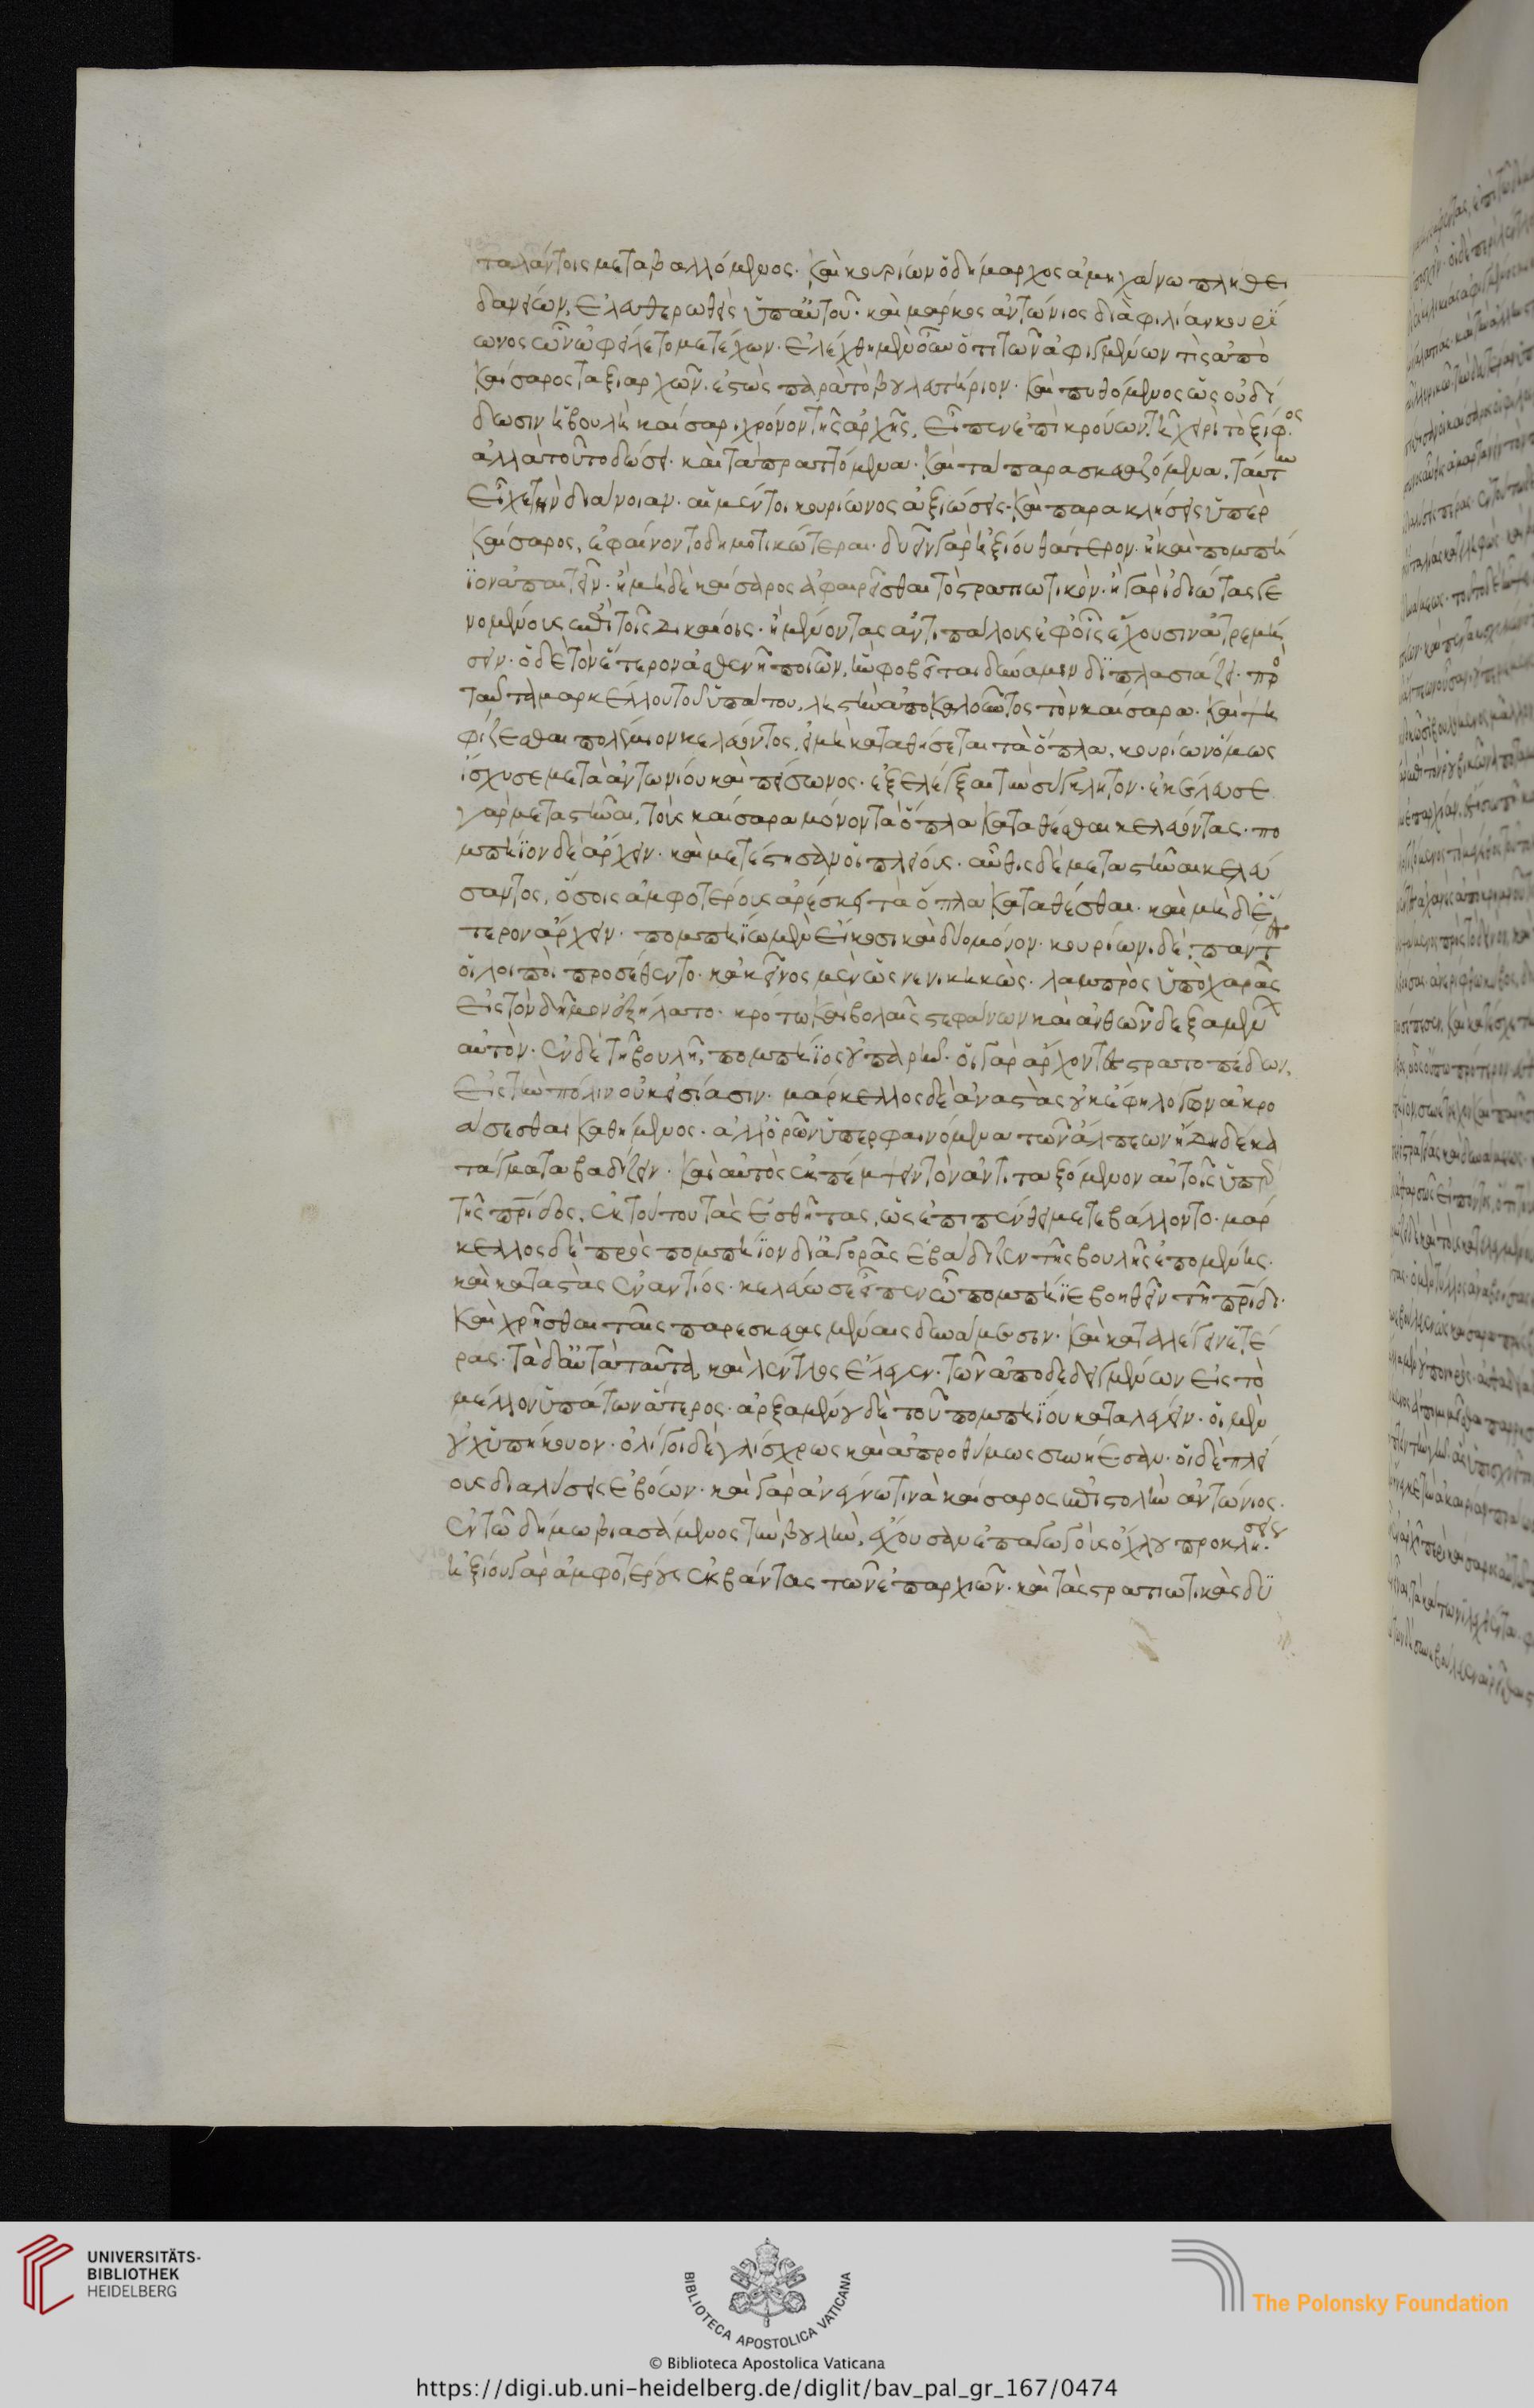 ταλάντοις μεταβαλλόμενος· καὶ κουρίων ὁ δήμαρχος ἀμηχάνω πλήθει
δανείων, ἐλευθερωθεὶς ὑπ' αὐτοῦ· καὶ μάρκος ἀντώνιος διὰ φιλίαν κουρϊ
ωνος ὧν ὠφείλετο μετέχων· ἐλέχθη μὲν οὖν ὅτι τῶν ἀφιγμένων τὶς ἀπὸ
καίσαρος ταξιαρχῶν· ἑστὼς παρὰ τὸ βουλευτήριον· καὶ πυθόμενος ὡς οὐ δί
δωσιν ἡ βουλὴ καίσαρι χρόνον τῆς ἀρχῆς, εἶπεν ἐπικρούων τῇ χειρὶ τὸ ξίφος·
ἀλλὰ τοῦτο δώσει· καὶ τὰ πραττόμενα· καὶ τὰ παρασκευαζόμενα, ταύτην
εἶχε τὴν διάνοιαν· αἱ μέντοι κουρίωνος ἀξιώσεις· καὶ παρακλήσεις ὑπὲρ
καίσαρος, ἐφαίνοντο δημοτικώτεραι· δυεῖν γὰρ ἠξίου θάτερον· ἢ καὶ πομπή
ϊον ἀπαιτεῖν· ἢ μὴ δὲ καίσαρος ἀφαιρεῖσθαι τὸ στρατιωτικόν· ἢ γὰρ ἰδιώτας γε
νομένους ἐπὶ τοῖς δικαίοις· ἢ μένοντας ἀντιπάλους ἐφ' οἷς ἔχουσιν ἀτρεμή
σειν· ὁ δὲ τὸν ἕτερον ἀσθενῆ ποιῶν, ἣν φοβεῖται δύναμιν διπλασιάζει· πρὸ
ταῦτα μαρκέλλου τοῦ ὑπάτου, λῃστὴν ἀποκαλοῦντος τὸν καίσαρα· καὶ ψη
φίζεσθαι πολέμιον κελεύοντος, εἰ μὴ καταθήσεται τὰ ὅπλα, κουρίων ὅμως
ἴσχυσε μετὰ ἀντωνίου καὶ πείσωνος· ἐξελέγξαι τὴν σύγκλητον· ἐκέλευσε
γὰρ μεταστῆναι, τοὺς καίσαρα μόνον τὰ ὅπλα καταθέσθαι κελεύοντας· πο
μπήϊον δὲ ἄρχειν· καὶ μετέστησαν οἱ πλείους· αὖθις δὲ μεταστῆναι κελεύ
σαντος, ὅσοις ἀμφοτέρους ἀρέσκει τὰ ὅπλα καταθέσθαι· καὶ μὴ δὲ ἕ
τερον ἄρχειν· πομπηΐω μὲν εἴκοσι καὶ δύο μόνον· κουρίωνι δὲ, πάντες
οἱ λοιποὶ προσέθεντο· κἀκεῖνος μὲν ὡς νενικηκὼς· λαμπρὸς ὑπὸ χαρᾶς
εἰς τὸν δῆμον ἐξήλατο· κρότω καὶ βολαῖς στεφάνων καὶ ἀνθῶν δεξάμενον
αὐτὸν· ἐν δὲ τῇ βουλῇ, πομπήϊος οὐ παρῆν· οἱ γὰρ ἄρχοντες στρατοπέδων,
εἰς τὴν πόλιν οὐκ εἰσίασιν· μάρκελλος δὲ ἀναστὰς οὐκ ἔφη λόγων ἀκρο
άσεσθαι καθήμενος· ἀλλ' ὁρῶν ὑπερφαινόμενα τῶν ἄλπεων ἤδη δέκα
τάγματα βαδίζειν· καὶ αὐτὸς ἐκπέμψειν τὸν ἀντιταξόμενον αὐτοῖς ὑπὲρ
τῆς πρίδος, ἐκ τούτου τὰς ἐσθῆτας, ὡς ἐπὶ πένθει μετεβάλλοντο· μάρ
κελλος δὲ πρὸς πομπήϊον δι' ἀγορᾶς ἐβάδιζεν τῆς βουλῆς ἑπομένης·
καὶ καταστὰς ἐναντίος· κελεύω σε εἶπεν ὦ πομπήϊε βοηθεῖν τῇ πρίδι·
καὶ χρῆσθαι ταῖς παρεσκευασμέναις δυνάμεσιν· καὶ καταλέγειν ἑτέ
ρας· τὰ δ' αὐτὰ ταῦτα, καὶ λέντλος ἔλεγεν· τῶν ἀποδεδειγμένων εἰς τὸ
μέλλον ὑπάτων ἅτερος· ἀρξαμένου δὲ τοῦ πομπηΐου καταλέγειν· οἱ μὲν
οὐχ ὑπήκουον· ὀλίγοι δὲ γλίσχρως καὶ ἀπροθύμως συνῄεσαν· οἱ δὲ πλεί
ους διαλύσεις ἐβόων· καὶ γὰρ ἀνέγνω τινὰ καίσαρος ἐπιστολὴν ἀντώνιος·
ἐν τῷ δήμω βιασάμενος τὴν βουλὴν, ἔχουσαν ἐπαγωγοὺς ὄχλου προκλήσεις
ἠξίου γὰρ ἀμφοτέρους ἐκβάντας τῶν ἐπαρχιῶν· καὶ τὰς στρατιωτικὰς δυ
UNIVERSITÄTS-
BIBLIOTHEK
HEIDELBERG
BIBLIOTECA APOSTOLICA VATICANA
The Polonsky Foundation
© Biblioteca Apostolica Vaticana
https://digi.ub.uni-heidelberg.de/diglit/bav_pal_gr_167/0474